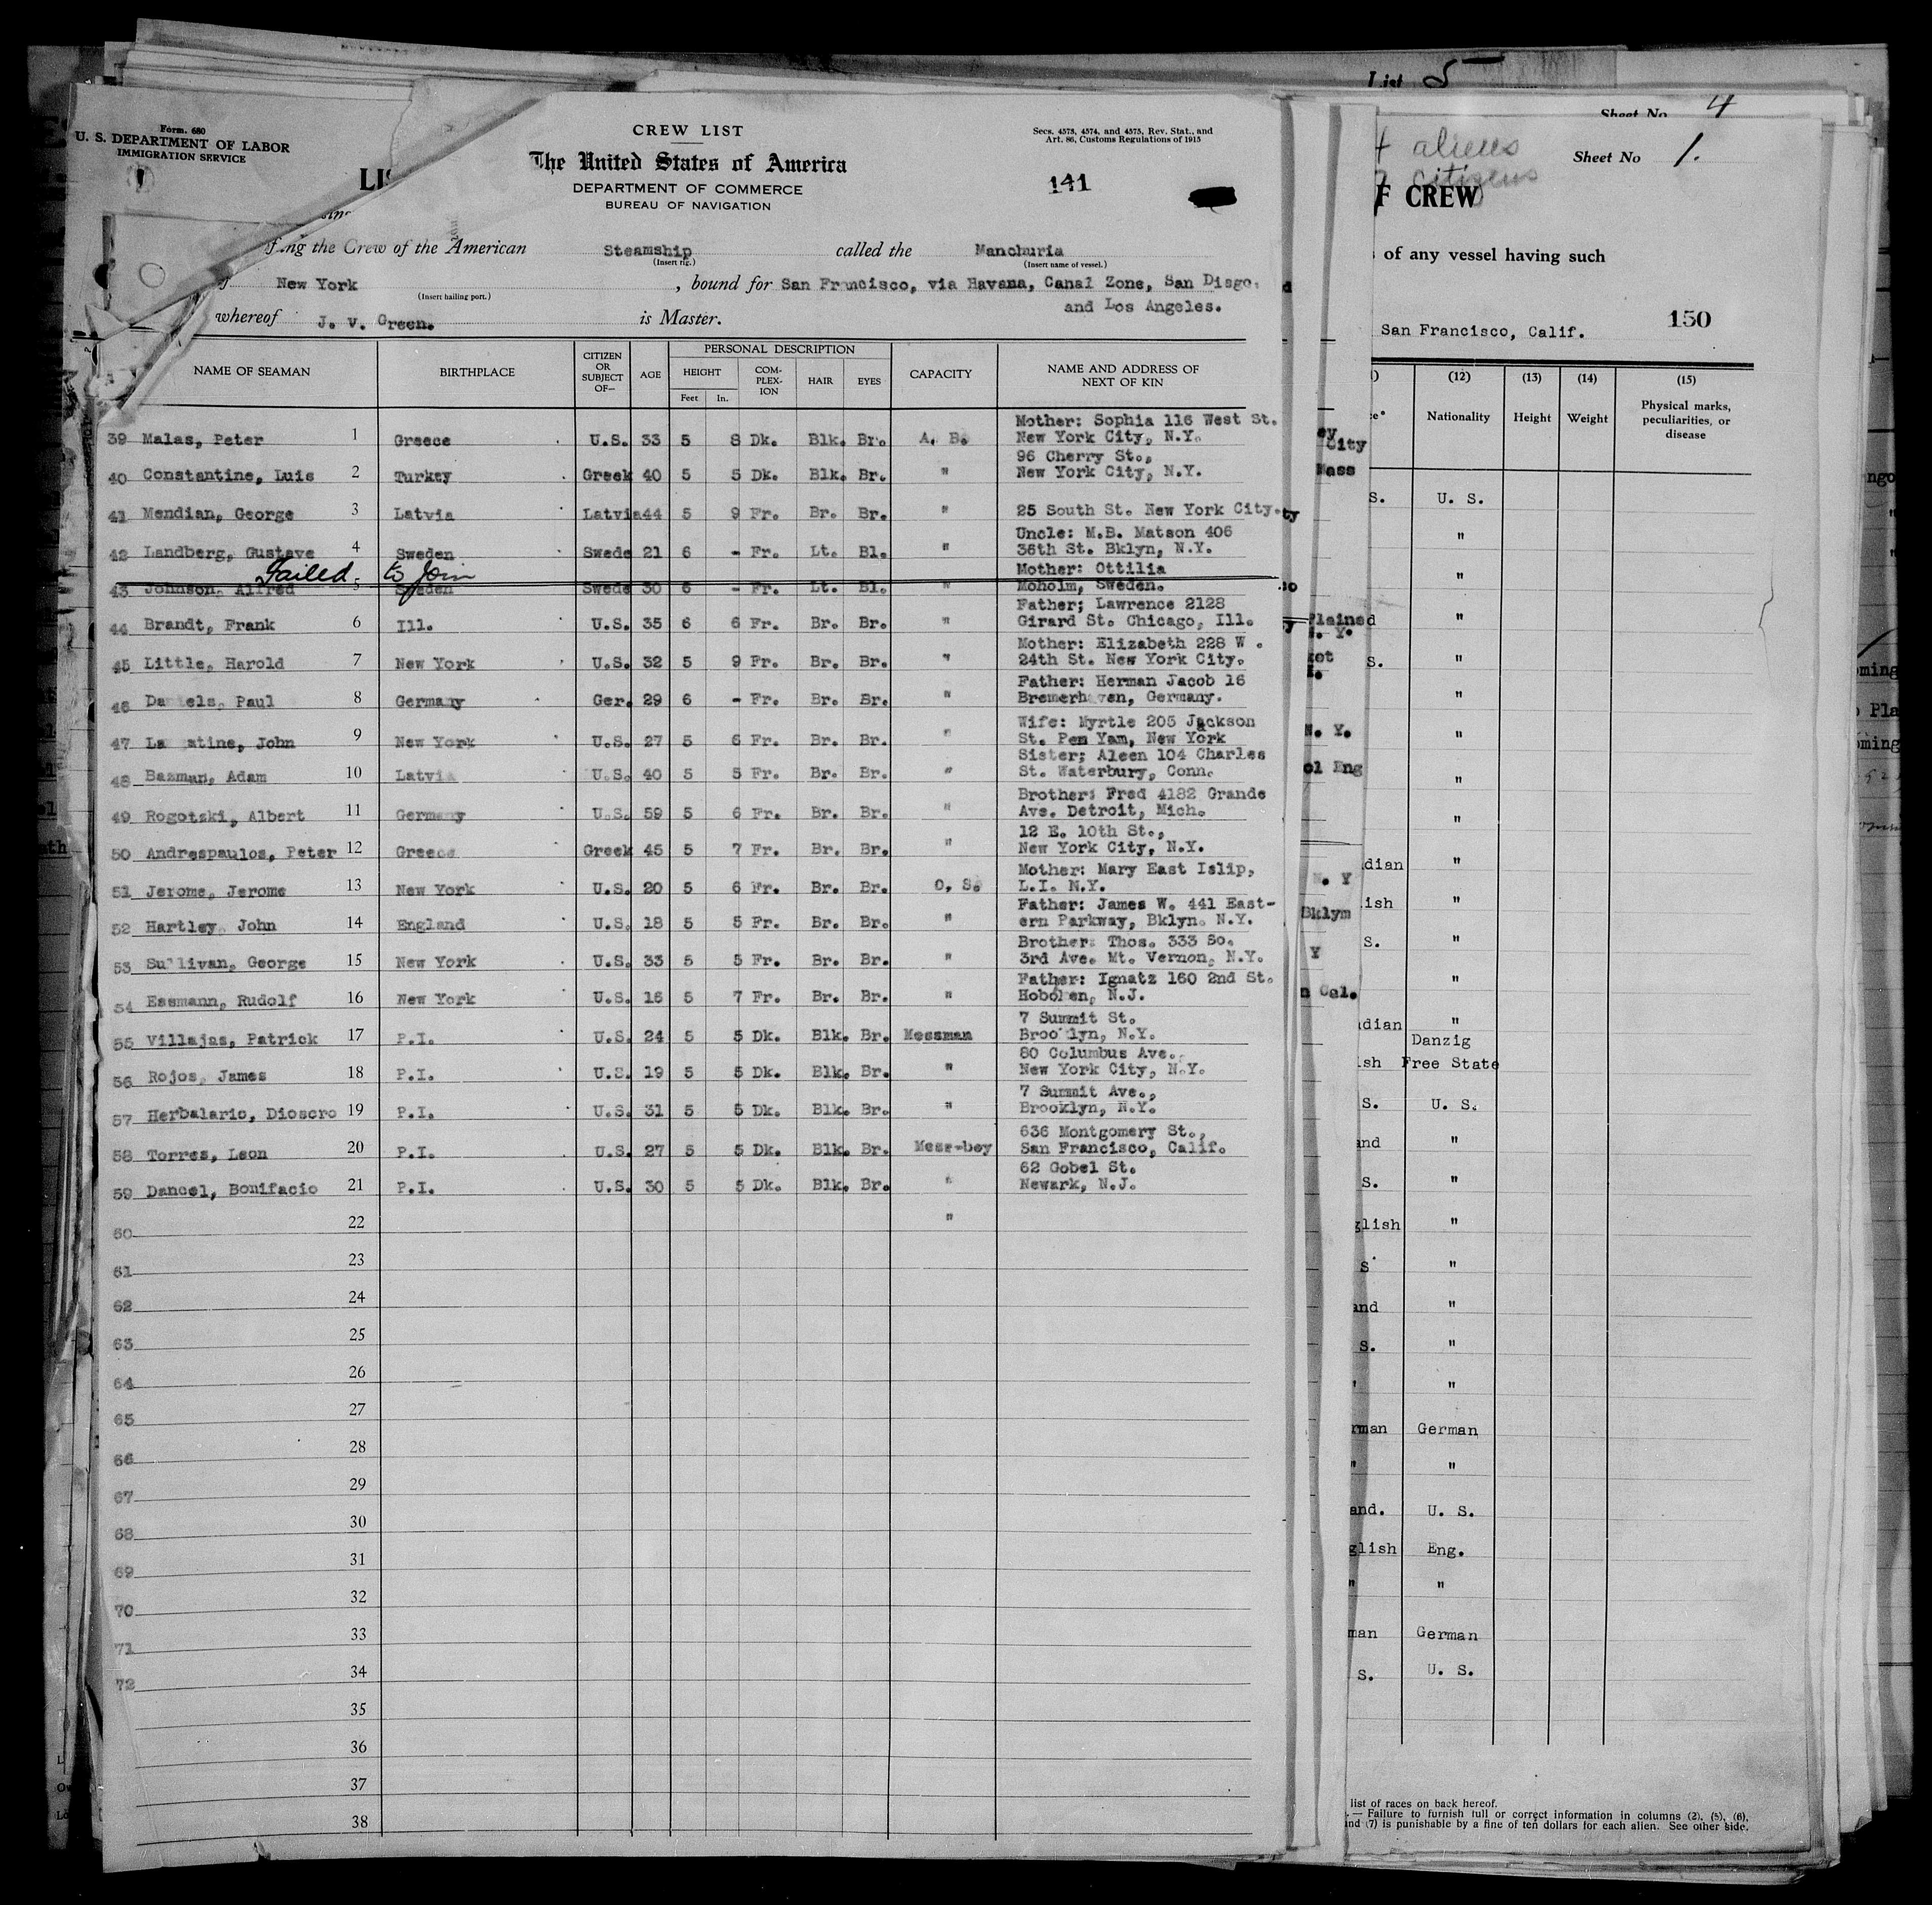 List 5
Sheet No 4
Form. 680
U. S. DEPARTMENT OF LABOR
IMMIGRATION SERVICE
CREW LIST
The United States of America
DEPARTMENT OF COMMERCE
BUREAU OF NAVIGATION
Secs. 4573, 4574, and 4575, Rev. Stat., and
Art. 86, Customs Regulations of 1915
141
the Crew of the American Steamship called the Manchuria
(Insert rig.) (Insert name of vessel.)
New York , bound for San Francisco, via Havana, Canal Zone, San Diego,
(Insert hailing port.)
and Los Angeles.
whereof J. V. Green. is Master.
NAME OF SEAMAN BIRTHPLACE CITIZEN OR SUBJECT OF— AGE PERSONAL DESCRIPTION CAPACITY NAME AND ADDRESS OF NEXT OF KIN
HEIGHT COM-PLEX-ION HAIR EYES
Feet In.
Mother: Sophia 116 West St.
39 Malas, Peter 1 Greece U.S. 33 5 8 Dk. Blk. Br. A. B. New York City, N.Y.
96 Cherry St.,
40 Constantine, Luis 2 Turkey Greek 40 5 5 Dk. Blk. Br. " New York City, N.Y.
41 Mendian, George 3 Latvia Latvia 44 5 9 Fr. Br. Br. " 25 South St. New York City.
Uncle: M.B. Matson 406
42 Landberg, Gustave 4 Sweden Swede 21 6 - Fr. Lt. Bl. " 36th St. Bklyn, N.Y.
Failed to Join
Mother: Ottilia
43 Johnson, Alfred 5 Sweden Swede 30 6 - Fr. Lt. Bl. " Moholm, Sweden.
Father; Lawrence 2128
44 Brandt, Frank 6 Ill. U.S. 35 6 6 Fr. Br. Br. " Girard St. Chicago, Ill.
Mother: Elizabeth 228 W .
45 Little, Harold 7 New York U.S. 32 5 9 Fr. Br. Br. " 24th St. New York City.
Father: Herman Jacob 16
46 Daniels, Paul 8 Germany Ger. 29 6 - Fr. Br. Br. " Bremerhaven, Germany.
Wife: Myrtle 205 Jackson
47 John 9 New York U.S. 27 5 6 Fr. Br. Br. " St. Pen Yam, New York
Sister; Aleen 104 Charles
48 Bazman, Adam 10 Latvia U.S. 40 5 5 Fr. Br. Br. " St. Waterbury, Conn.
Brother: Fred 4182 Grande
49 Rogotzki, Albert 11 Germany U.S. 59 5 6 Fr. Br. Br. " Ave. Detroit, Mich.
12 E. 10th St.,
50 Andrespaulos, Peter 12 Greece Greek 45 5 7 Fr. Br. Br. " New York City, N.Y.
Mother: Mary East Islip,
51 Jerome, Jerome 13 New York U.S. 20 5 6 Fr. Br. Br. O. S. L.I. N.Y.
Father: James W. 441 East-
52 Hartley, John 14 England U.S. 18 5 5 Fr. Br. Br. " ern Parkway, Bklyn. N.Y.
Brother: Thos. 333 So.
53 Sullivan, George 15 New York U.S. 33 5 5 Fr. Br. Br. " 3rd Ave. Mt. Vernon, N.Y.
Father: Ignatz 160 2nd St.
54 Essmann, Rudolf 16 New York U.S. 16 5 7 Fr. Br. Br. " Hoboken, N.J.
7 Summit St.
55 Villajas, Patrick 17 P.I. U.S. 24 5 5 Dk. Blk. Br. Messman Brooklyn, N.Y.
80 Columbus Ave.
56 Rojos, James 18 P.I. U.S. 19 5 5 Dk. Blk. Br. " New York City, N.Y.
7 Summit Ave.,
57 Herbalario, Dioscro 19 P.I. U.S. 31 5 5 Dk. Blk. Br. " Brooklyn, N.Y.
636 Montgomery St.,
58 Torres, Leon 20 P.I. U.S. 27 5 5 Dk. Blk. Br. Mess-boy San Francisco, Calif.
62 Gobel St.
59 Dancel, Bonifacio 21 P.I. U.S. 30 5 5 Dk. Blk. Br. " Newark, N.J.
60 22 "
61 23
62 24
63 25
64 26
65 27
66 28
67 29
68 30
69 31
70 32
71 33
72 34
35
36
37
38
4 aliens
citizens
Sheet No 1.
F CREW
of any vessel having such
150
San Francisco, Calif.
(12) (13) (14) (15)
Nationality Height Weight Physical marks, peculiarities, or disease
City
Mass
S. U. S.
"
"
Plained "
N. Y.
S. "
"
N. Y. "
ol Eng "
"
dian "
N. Y
ish "
Bklym
S. "
Y
"
n Cal.
dian "
Danzig
ish Free State
S. U. S.
and "
S. "
glish "
S "
and "
S. "
" "
rman German
" "
and. U. S.
glish Eng.
" "
man German
S. U. S.
list of races on back hereof.
— Failure to furnish full or correct information in columns (2), (5), (6),
and (7) is punishable by a fine of ten dollars for each alien. See other side.